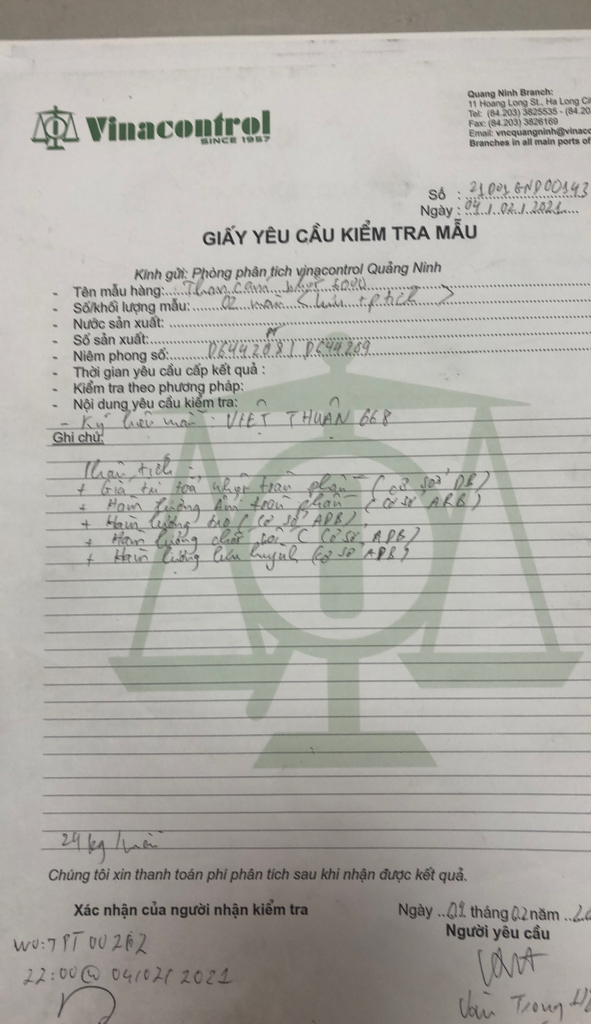 Vinacontrol
SINCE 1957
Quang Ninh Branch:
11 Hoang Long St., Ha Long
Tel: (84.203) 3825535 - (84.20
Fax: (84.203) 3826169
Email: vncquangninh@vinac
Branches in all main ports of
Số : 21D01GND00143
Ngày : 04/02/2021
GIẤY YÊU CẦU KIỂM TRA MẪU
Kính gửi: Phòng phân tích vinacontrol Quảng Ninh
- Tên mẫu hàng: Than cám
- Số/khối lượng mẫu: 02 mẫu (lưu + ptích)
- Nước sản xuất:
- Số sản xuất:
- Niêm phong số: D644
- Thời gian yêu cầu cấp kết quả :
- Kiểm tra theo phương pháp:
- Nội dung yêu cầu kiểm tra:
- Ký hiệu mẫu: VIỆT THUẬN 668
Ghi chú:
Phân tích:
+ Giá trị toả nhiệt toàn phần (cơ sở DB)
+ Hàm lượng ẩm toàn phần (cơ sở ARB)
+ Hàm lượng tro (cơ sở ADB)
+ Hàm lượng chất bốc (cơ sở ADB)
+ Hàm lượng lưu huỳnh (cơ sở ADB)
24 kg/mẫu
Chúng tôi xin thanh toán phí phân tích sau khi nhận được kết quả.
Xác nhận của người nhận kiểm tra
Ngày tháng 02 năm
Người yêu cầu
22:00 @ 04/02/2021
Trong